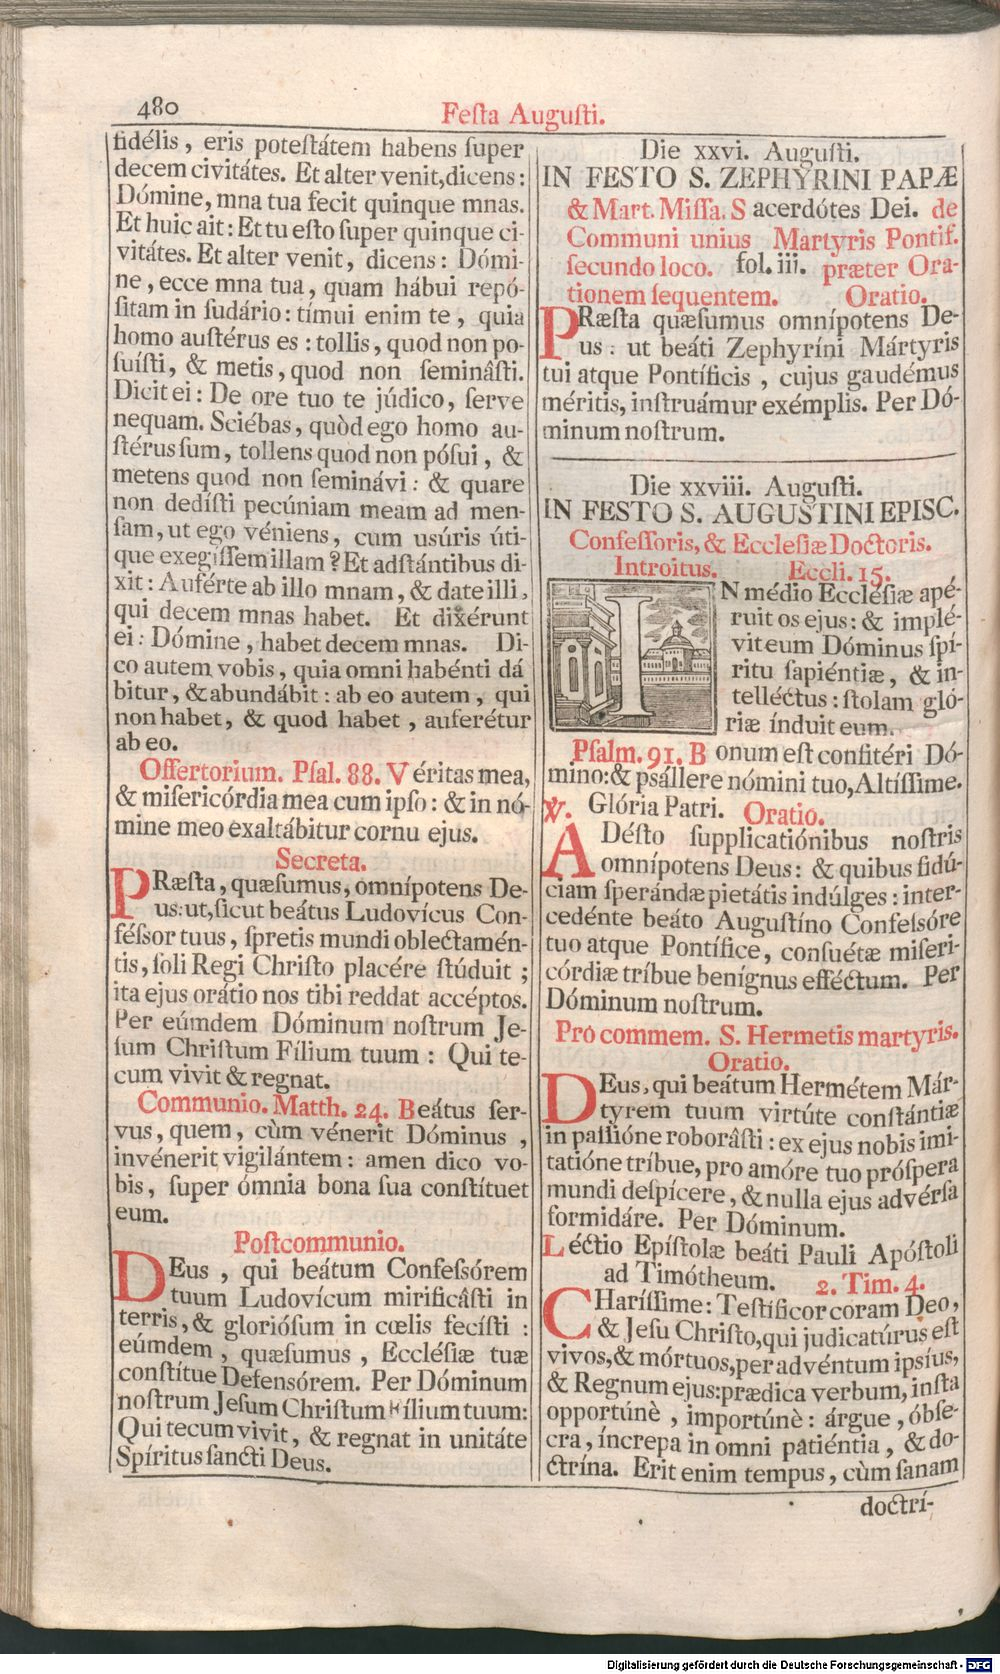 480
Feſta Auguſti.
fidélis, eris poteſtátem habens ſuper
decem civitátes. Et alter venit, dicens:
Dómine, mna tua fecit quinque mnas.
Et huic ait: Et tu eſto ſuper quinque ci-
vitátes. Et alter venit, dicens: Dómi-
ne, ecce mna tua, quam hábui repó-
ſitam in ſudário: tímui enim te, quia
homo auſtérus es: tollis, quod non po-
ſuíſti, & metis, quod non ſeminâſti.
Dicit ei: De ore tuo te júdico, ſerve
nequam. Sciébas, quòd ego homo au-
ſtérus ſum, tollens quod non póſui, &
metens quod non ſeminávi: & quare
non dedíſti pecúniam meam ad men-
ſam, ut ego véniens, cum usúris úti-
que exegiſſem illam? Et adſtántibus di-
xit: Auférte ab illo mnam, & date illi,
qui decem mnas habet. Et dixérunt
ei: Dómine, habet decem mnas. Di-
co autem vobis, quia omni habénti dá
bitur, & abundábit: ab eo autem, qui
non habet, & quod habet, auferétur
ab eo.
Offertorium. Pſal. 88. Véritas mea,
& miſericórdia mea cum ipſo: & in nó-
mine meo exaltábitur cornu ejus.
Secreta.
PRæſta, quæſumus, omnípotens De-
us: ut, ſicut beátus Ludovícus Con-
féſſor tuus, ſpretis mundi oblectamén-
tis, ſoli Regi Chriſto placére ſtúduit;
ita ejus orátio nos tibi reddat accéptos.
Per eúmdem Dóminum noſtrum Je-
ſum Chriſtum Fílium tuum: Qui te-
cum vivit & regnat.
Communio. Matth. 24. Beátus ſer-
vus, quem, cùm vénerit Dóminus,
invénerit vigilántem: amen dico vo-
bis, ſuper ómnia bona ſua conſtítuet
eum.
Poſtcommunio.
DEus, qui beátum Confeſsórem
tuum Ludovícum mirificâſti in
terris, & glorióſum in cœlis fecíſti:
eúmdem, quæſumus, Eccléſiæ tuæ
conſtítue Defensórem. Per Dóminum
noſtrum Jeſum Chriſtum Fílium tuum:
Qui tecum vivit, & regnat in unitáte
Spíritus ſancti Deus.
Die xxvi. Auguſti.
IN FESTO S. ZEPHYRINI PAPÆ
& Mart. Miſſa. Sacerdótes Dei. de
Communi unius Martyris Pontif.
ſecundo loco. fol. iii. præter Ora-
tionem ſequentem. Oratio.
PRæſta quæſumus omnípotens De-
us: ut beáti Zephyríni Mártyris
tui atque Pontíficis, cujus gaudémus
méritis, inſtruámur exémplis. Per Dó-
minum noſtrum.
Die xxviii. Auguſti.
IN FESTO S. AUGUSTINI EPISC.
Confeſſoris, & Eccleſiæ Doctoris.
Introitus. Eccli. 15.
IN médio Eccléſiæ apé-
ruit os ejus: & implé-
vit eum Dóminus ſpí-
ritu ſapiéntiæ, & in-
telléctus: ſtolam gló-
riæ índuit eum.
Pſalm. 91. Bonum eſt confitéri Dó-
mino: & psállere nómini tuo, Altíſſime.
℣. Glória Patri. Oratio.
ADéſto ſupplicatiónibus noſtris
omnípotens Deus: & quibus fidú-
ciam ſperándæ pietátis indúlges: inter-
cedénte beáto Auguſtíno Confeſsóre
tuo atque Pontífice, conſuétæ miſeri-
córdiæ tríbue benígnus efféctum. Per
Dóminum noſtrum.
Pro commem. S. Hermetis martyris.
Oratio.
DEus, qui beátum Hermétem Már-
tyrem tuum virtúte conſtántiæ
in paſſióne roborâſti: ex ejus nobis imi-
tatióne tríbue, pro amóre tuo próſpera
mundi deſpícere, & nulla ejus advérſa
formidáre. Per Dóminum.
Léctio Epíſtolæ beáti Pauli Apóſtoli
ad Timótheum. 2. Tim. 4.
CHaríſſime: Teſtíficor coram Deo,
& Jeſu Chriſto, qui judicatúrus eſt
vivos, & mórtuos, per advéntum ipsíus,
& Regnum ejus: prædica verbum, inſta
opportúnè, importúnè: árgue, óbſe-
cra, íncrepa in omni patiéntia, & do-
ctrína. Erit enim tempus, cùm ſanam
doctrí-
Digitalisierung gefördert durch die Deutsche Forschungsgemeinschaft - DFG